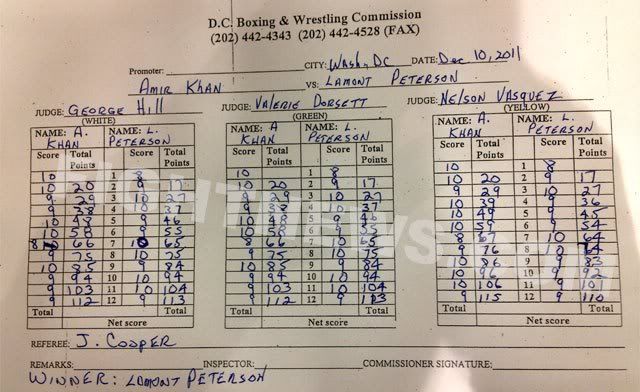 D.C. Boxing & Wrestling Commission
(202) 442-4343 (202) 442-4528 (FAX)
Promoter: CITY: Wash, DC DATE: Dec 10, 2011
Amir Khan VS. Lamont Peterson
JUDGE: George Hill JUDGE: Valerie Dorsett JUDGE: Nelson Vasquez
(WHITE) (GREEN) (YELLOW)
NAME: A. Khan NAME: L. Peterson NAME: A Khan NAME: L. Peterson NAME: A. Khan NAME: L. Peterson
Score Total Points Score Total Points Score Total Points Score Total Points Score Total Points Score Total Points
10 1 8 10 1 8 10 1 8
10 20 2 9 17 10 20 2 9 17 10 20 2 9 17
9 29 3 10 27 9 29 3 10 27 9 29 3 10 27
9 38 4 10 37 9 38 4 10 37 10 39 4 9 36
10 48 5 9 46 10 48 5 9 46 10 49 5 9 45
10 58 6 9 55 10 58 6 9 55 10 59 6 9 54
8 66 7 10 65 8 66 7 10 65 8 67 7 10 64
9 75 8 10 75 9 75 8 10 75 9 76 8 10 74
10 85 9 9 84 10 85 9 9 84 10 86 9 9 83
9 94 10 10 94 9 94 10 10 94 10 96 10 9 92
9 103 11 10 104 9 103 11 10 104 10 106 11 9 101
9 112 12 9 113 9 112 12 9 113 9 115 12 9 110
Total Total Total Total Total Total
Net score Net score Net score
REFEREE: J. Cooper
REMARKS: INSPECTOR: COMMISSIONER SIGNATURE:
Winner: Lamont Peterson